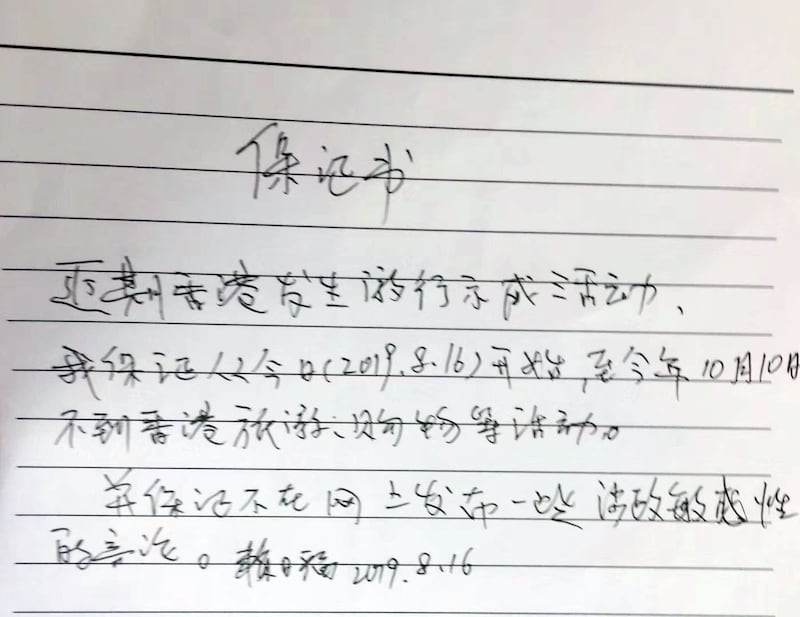 保证书
近期香港发生游行示威活动、
我保证从今日(2019.8.16)开始,至今年10月10日
不到香港旅游、购物等活动。
并保证不在网上发布一些涉政敏感性
的言论。赖日福 2019.8.16